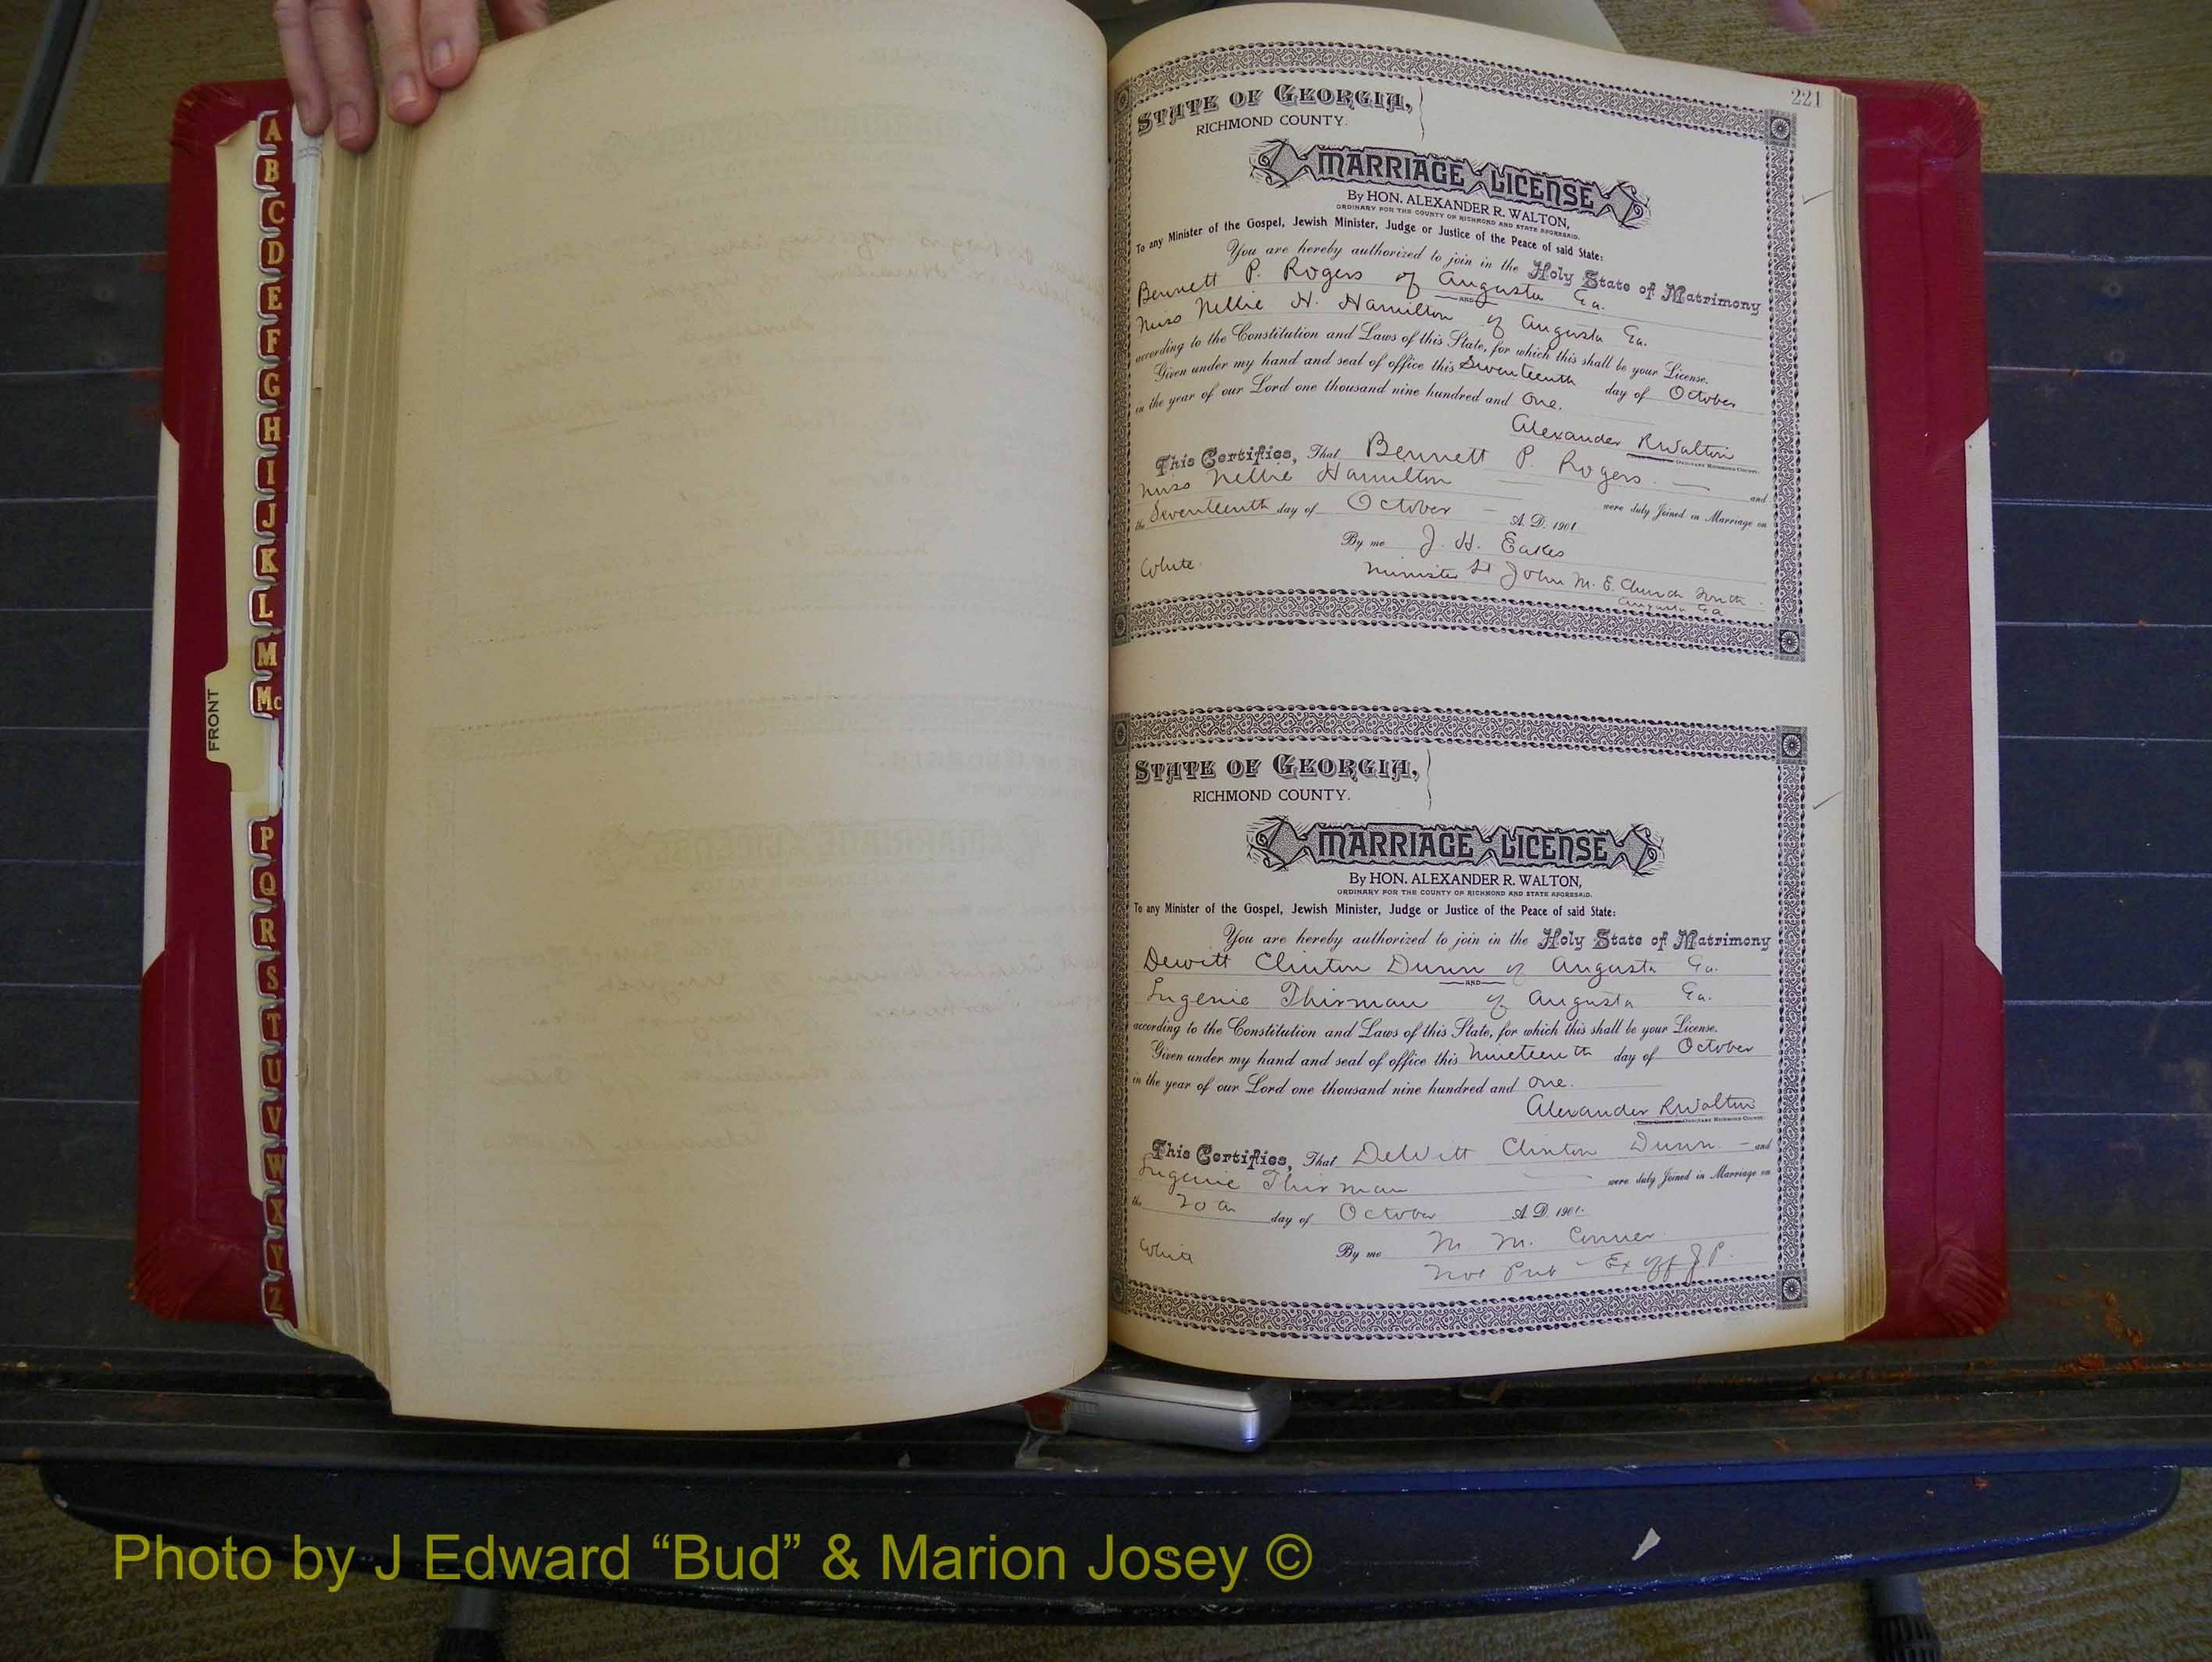 A
B
C
D
E
F
G
H
I
J
K
L
M
Mc
FRONT
P
Q
R
S
T
U
V
W
X
Y
Z
221
STATE OF GEORGIA,
RICHMOND COUNTY.
MARRIAGE LICENSE
By HON. ALEXANDER R. WALTON,
ORDINARY FOR THE COUNTY OF RICHMOND AND STATE AFORESAID.
To any Minister of the Gospel, Jewish Minister, Judge or Justice of the Peace of said State:
You are hereby authorized to join in the Holy State of Matrimony
Bennett P. Rogers of Augusta Ga.
AND
Miss Nellie H. Hamilton of Augusta Ga.
according to the Constitution and Laws of this State, for which this shall be your License.
Given under my hand and seal of office this Seventeenth day of October
in the year of our Lord one thousand nine hundred and One.
Alexander R Walton
ORDINARY RICHMOND COUNTY.
This Certifies, That Bennett P. Rogers. and
Miss Nellie Hamilton were duly Joined in Marriage on
the Seventeenth day of October A. D. 1901.
By me J. H. Eakes
White. Minister St John M. E. Church South.
Augusta Ga
STATE OF GEORGIA,
RICHMOND COUNTY.
MARRIAGE LICENSE
By HON. ALEXANDER R. WALTON,
ORDINARY FOR THE COUNTY OF RICHMOND AND STATE AFORESAID.
To any Minister of the Gospel, Jewish Minister, Judge or Justice of the Peace of said State:
You are hereby authorized to join in the Holy State of Matrimony
Dewitt Clinton Dunn of Augusta Ga.
AND
Eugenie Thirman of Augusta Ga.
according to the Constitution and Laws of this State, for which this shall be your License.
Given under my hand and seal of office this Nineteenth day of October
in the year of our Lord one thousand nine hundred and One.
Alexander R Walton
ORDINARY RICHMOND COUNTY.
This Certifies, That DeWitt Clinton Dunn. and
Eugenie Thirman were duly Joined in Marriage on
the 20th day of October A. D. 1901.
White By me M. M. Conner
Not Pub - Ex off J P.
Photo by J Edward “Bud” & Marion Josey ©